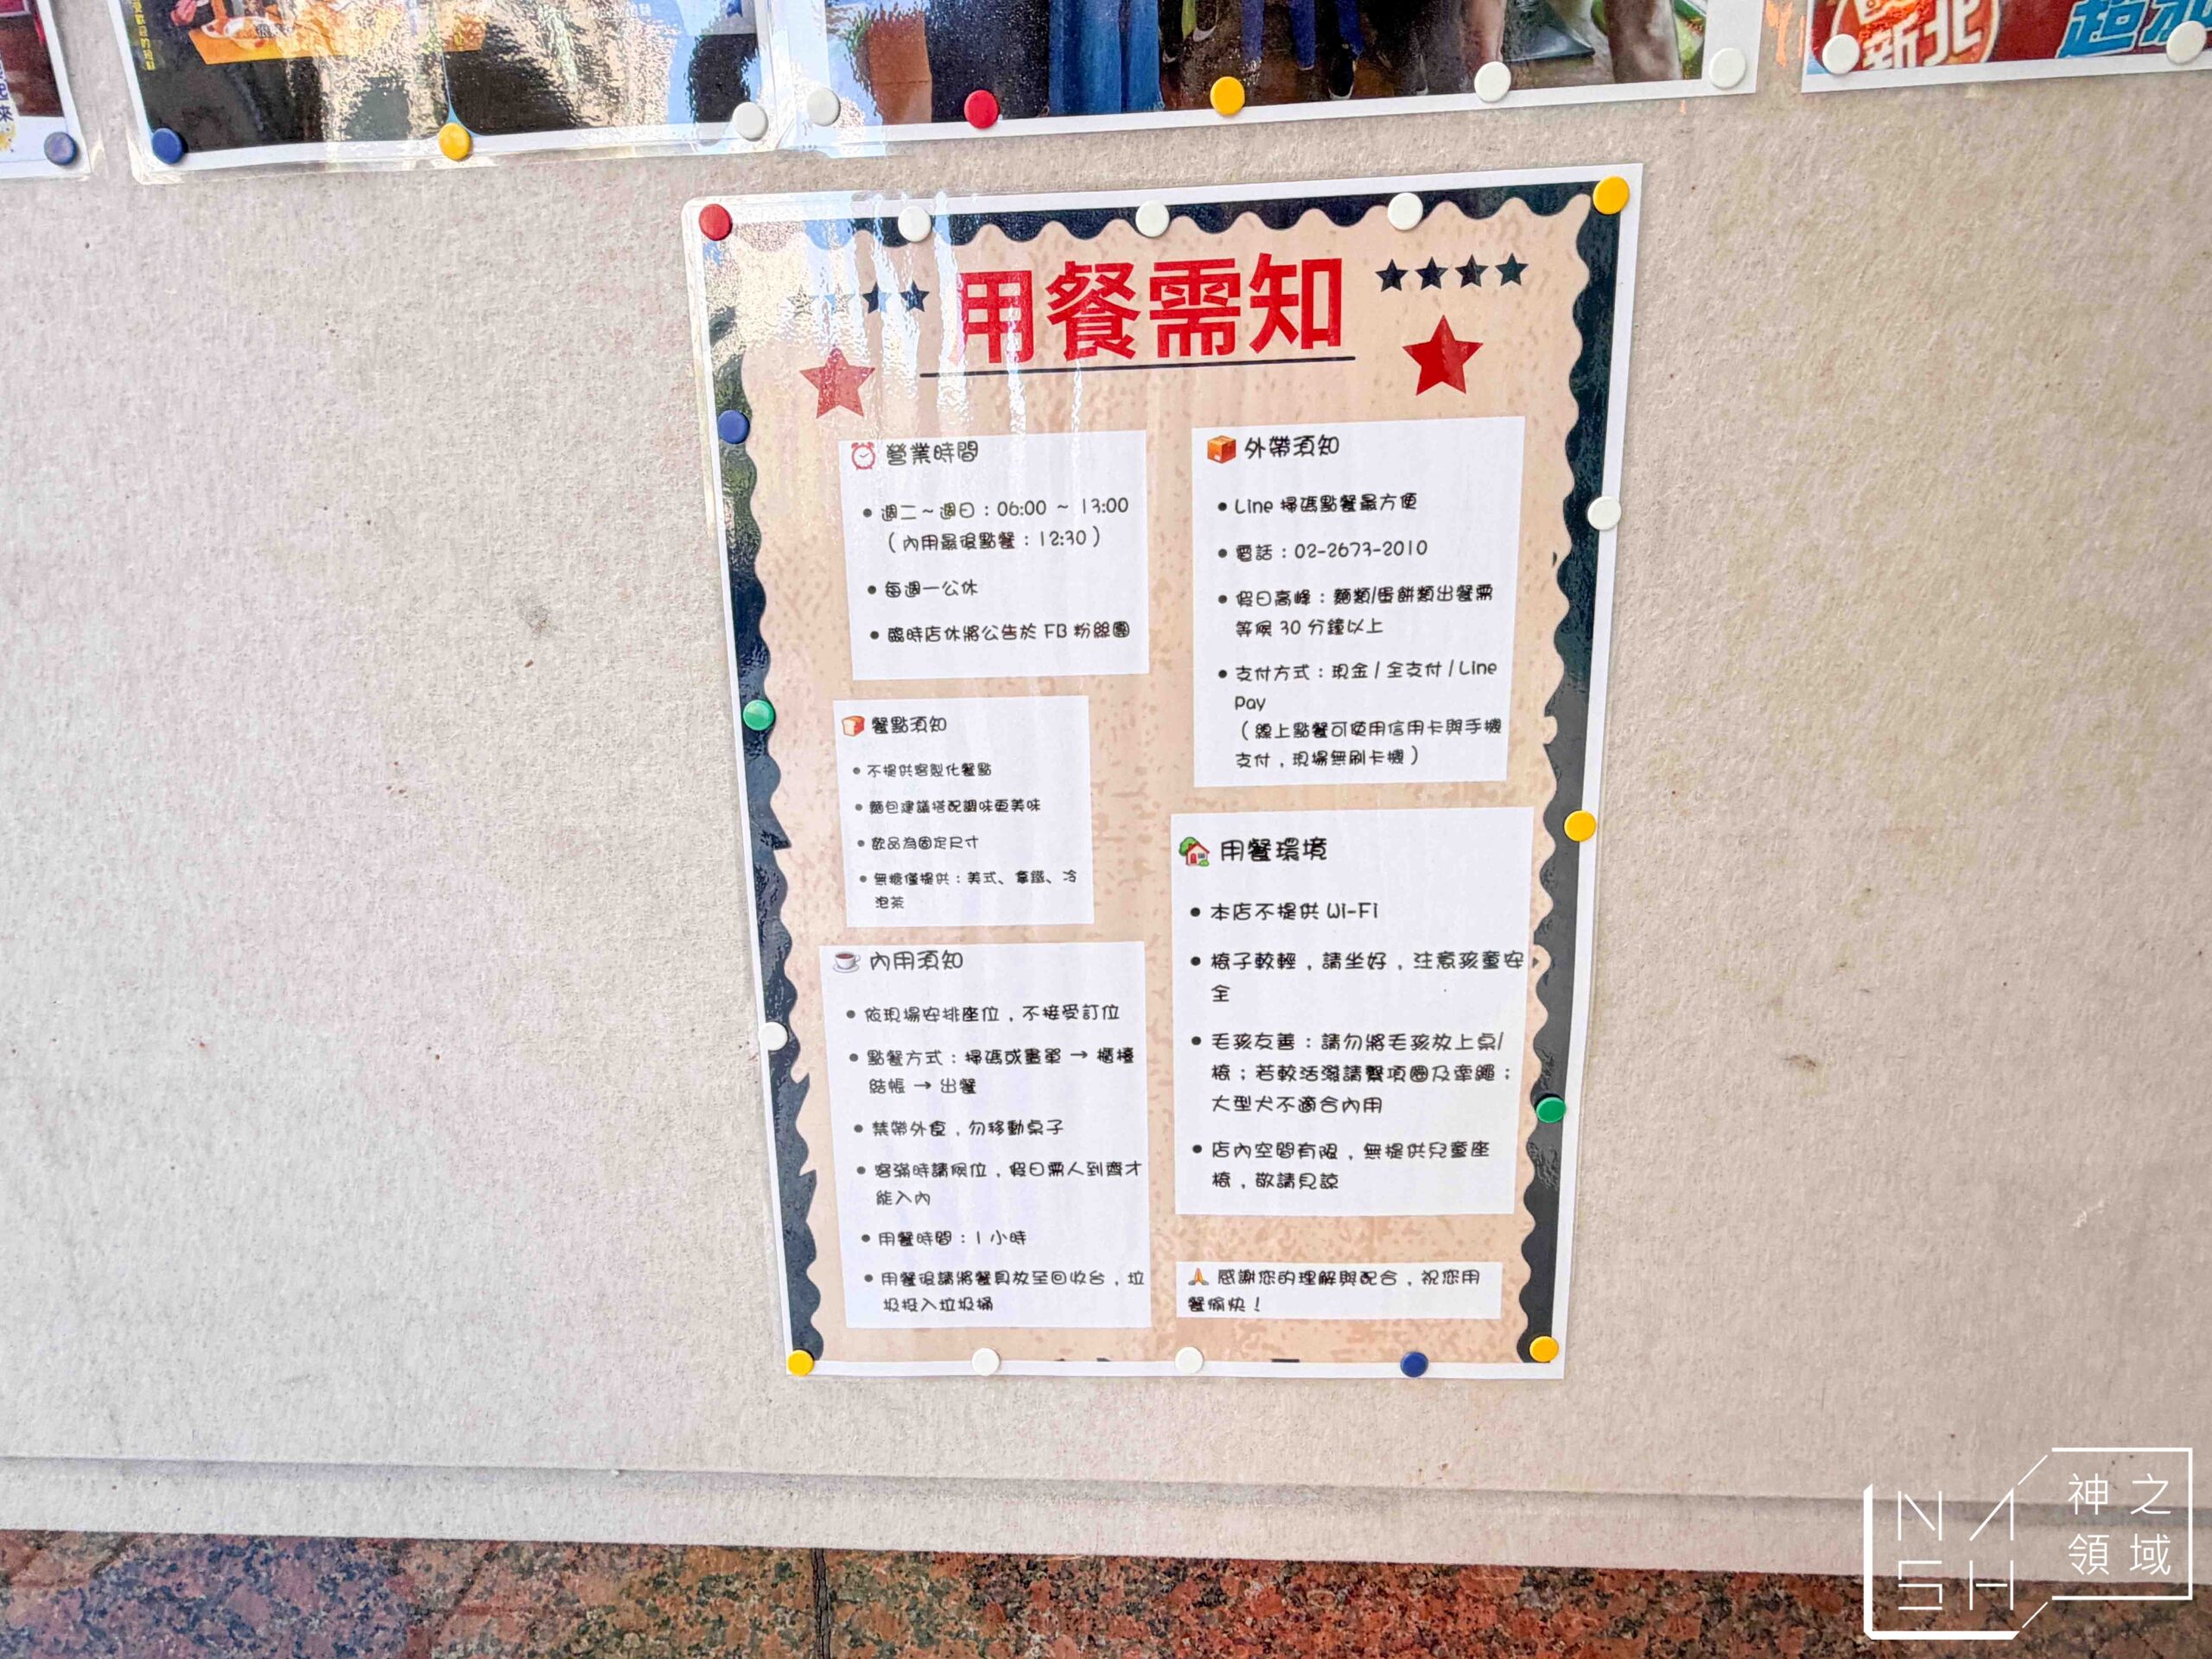 新北
用餐需知
營業時間
週二～週日：06:00 ~ 13:00
（內用最後點餐：12:30）
每週一公休
臨時店休將公告於 FB 粉絲團
餐點須知
不提供客製化餐點
麵包建議搭配調味更美味
飲品為固定尺寸
無糖僅提供：美式、拿鐵、冷
泡茶
內用須知
依現場安排座位，不接受訂位
點餐方式：掃碼或畫單 → 櫃檯
結帳 → 出餐
禁帶外食，勿移動桌子
客滿時請候位，假日需人到齊才
能入內
用餐時間：1 小時
用餐後請將餐具放至回收台，垃
圾投入垃圾桶
外帶須知
Line 掃碼點餐最方便
電話：02-2673-2010
假日高峰：麵類/蛋餅類出餐需
等候 30 分鐘以上
支付方式：現金 / 全支付 / Line
Pay
（線上點餐可使用信用卡與手機
支付，現場無刷卡機）
用餐環境
本店不提供 Wi-Fi
椅子較輕，請坐好，注意孩童安
全
毛孩友善：請勿將毛孩放上桌/
椅；若較活潑請繫項圈及牽繩；
大型犬不適合內用
店內空間有限，無提供兒童座
椅，敬請見諒
感謝您的理解與配合，祝您用
餐愉快！
NASH
神之
領域